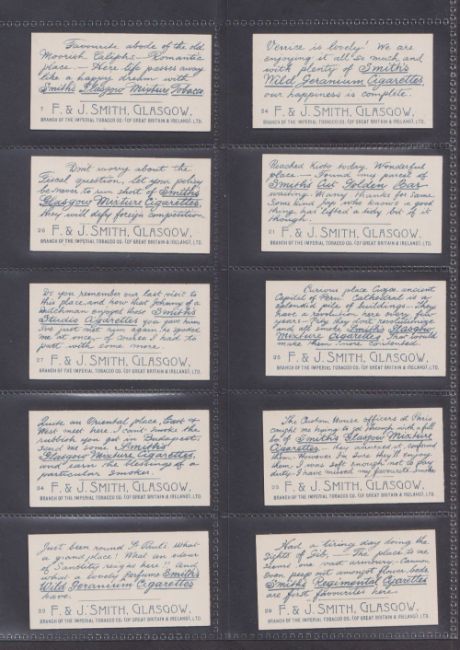 Favourite abode of the old
Moorish Caliphs — Romantic
place — Here life passes away
like a happy dream with
Smith's Glasgow Mixture Tobacco
F. & J. SMITH, GLASGOW.
BRANCH OF THE IMPERIAL TOBACCO CO. (OF GREAT BRITAIN & IRELAND), LTD.
Venice is lovely! We are
enjoying it all so much and
with plenty of Smith's
Wild Geranium Cigarettes
our happiness is complete.
F. & J. SMITH, GLASGOW.
BRANCH OF THE IMPERIAL TOBACCO CO. (OF GREAT BRITAIN & IRELAND), LTD.
Don't worry about the
Fiscal question, let your policy
be never to run short of Smith's
Glasgow Mixture Cigarettes,
they will defy foreign competition
F. & J. SMITH, GLASGOW.
BRANCH OF THE IMPERIAL TOBACCO CO. (OF GREAT BRITAIN & IRELAND), LTD.
Reached Kioto today. Wonderful
place — Found my parcel of
Smith's Cut Golden Bar
waiting. Many thanks for same.
Some kind Jap who knows a good
thing has lifted a bit of it
though.
21 F. & J. SMITH, GLASGOW.
BRANCH OF THE IMPERIAL TOBACCO CO. (OF GREAT BRITAIN & IRELAND), LTD.
Do you remember our last visit to
this place, and how that Johnny of a
Dutchman enjoyed those Smith's
Studio Cigarettes you gave him
I've just met him again. He spotted
me at once, of course I had to
part with some more.
27 F. & J. SMITH, GLASGOW.
BRANCH OF THE IMPERIAL TOBACCO CO. (OF GREAT BRITAIN & IRELAND), LTD.
Curious place Cuzco, ancient
Capital of Peru. Cathedral is a
splendid pile of buildings. They
have a revolution here every few
years. Pity they don't revolutionize
and all smoke Smith's Glasgow
Mixture Cigarettes. That would
make them more contented.
F. & J. SMITH, GLASGOW.
BRANCH OF THE IMPERIAL TOBACCO CO. (OF GREAT BRITAIN & IRELAND), LTD.
Quite an Oriental place, East &
West meet here. I can't smoke the
rubbish you get in Budapest,
send me some Smith's
Glasgow Mixture Cigarettes,
and earn the blessings of a
particular smoker.
F. & J. SMITH, GLASGOW.
BRANCH OF THE IMPERIAL TOBACCO CO. (OF GREAT BRITAIN & IRELAND), LTD.
The Custom House officers at Paris
caught me trying to go through with a full
box of Smith's Glasgow Mixture
Cigarettes. they
them. However I'm sure they'll enjoy
them. I was soft enough not to pay
duty & have missed my favourite smoke
F. & J. SMITH, GLASGOW.
BRANCH OF THE IMPERIAL TOBACCO CO. (OF GREAT BRITAIN & IRELAND), LTD.
Just been round St Pauls. What
a grand place! What an odour
of Sanctity reigns here!! And
what a lovely perfume Smith's
Wild Geranium Cigarettes
have.
F. & J. SMITH, GLASGOW.
BRANCH OF THE IMPERIAL TOBACCO CO. (OF GREAT BRITAIN & IRELAND), LTD.
Had a tiring day doing the
sights of Gib. — The place to me
seems one vast armoury. Cannon
even peep out amongst flower beds
Smith's Regimental Cigarettes
are first favourites here.
F. & J. SMITH, GLASGOW.
BRANCH OF THE IMPERIAL TOBACCO CO. (OF GREAT BRITAIN & IRELAND), LTD.